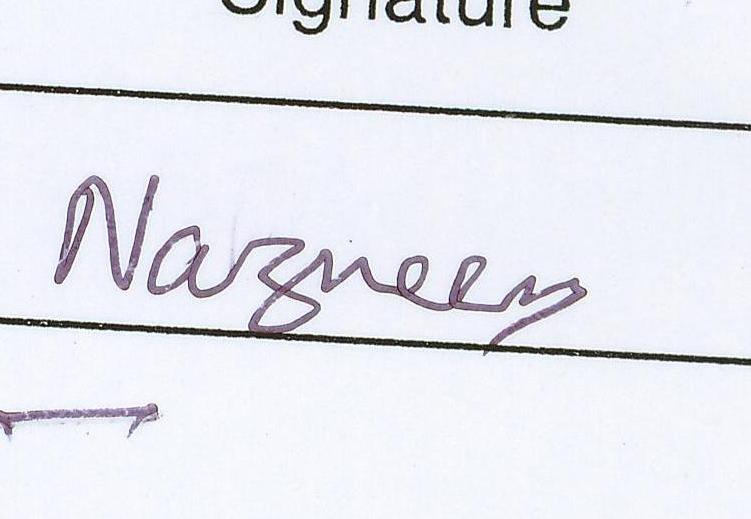 Signature
Nazneen